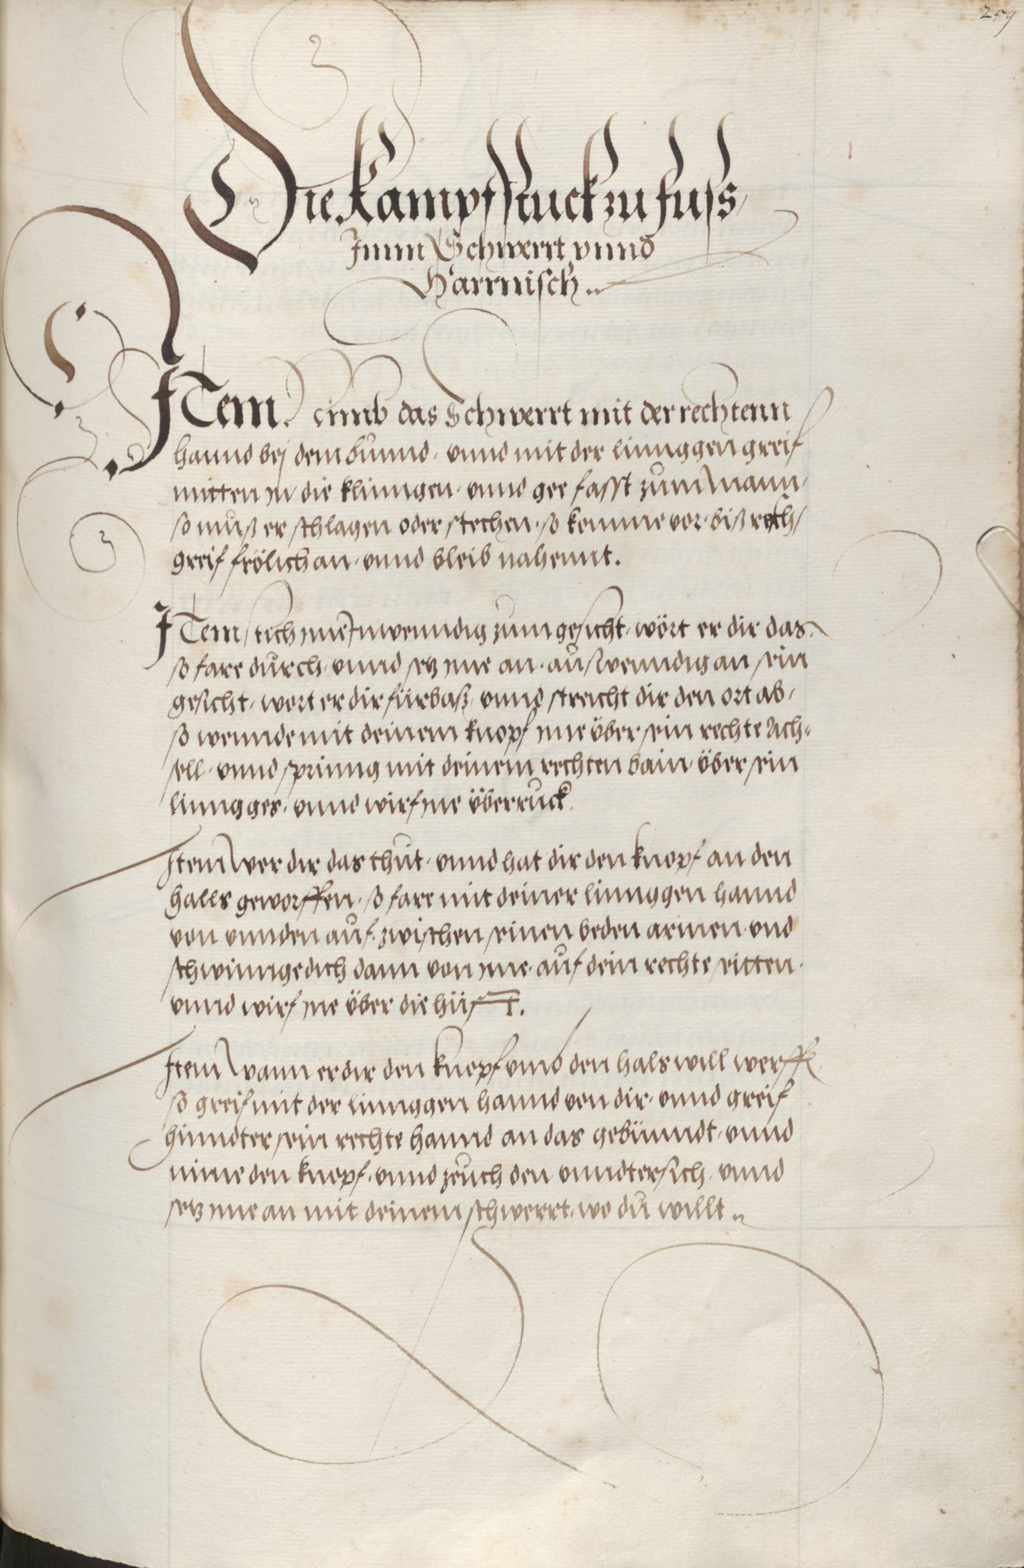 259
Die Kampfstuck zu fuss
Jnn Schwerrt vnnd
Harrnisch.
JTem Nimb das Schwerrt mit der rechtenn
hannd bej dem bunnd, vnnd mit der linnggen greif
mitten jn die klinngen, vnnd gee fasst zum Mann,
so můß er schlagen oder stechen, so komme vor, biß resch,
greif frölich an, vnnd bleib nahennt.
JTem stich jme Jnwenndig zum gesicht, wört er dir das
so fare dürch, vnnd setz jme an, außwenndig an sein
gesicht, wört er dir fürbaß, vnnd streicht dir den ort ab,
so wennde mit deinem knopf jme über sein rechte Ach-
sell, vnnd sprinng mit deinem rechten bain, über sein
linngges, vnnd wirf jne überruck
Jtem Wer dir das thůt, vnnd hat dir den knopf an den
halls geworffen, so fare mit deiner linnggen hannd
von vnnden auf, zwischen seinen beden armen, vnd
schwinnge dich dann von jme, auf dein rechte seitten,
vnnd wirf jne über die hüfft.
Jtem Wann er dir den knopf vmb den hals will werffen
so greif mit der linnggen hannd von dir, vnnd greif
hinndter sein rechte hannd an das gebünndt, vnnd
nime den knopf, vnnd zeüch den vnndtersich, vnnd
setz jme an mit deinem schwerrt, wo dů willt